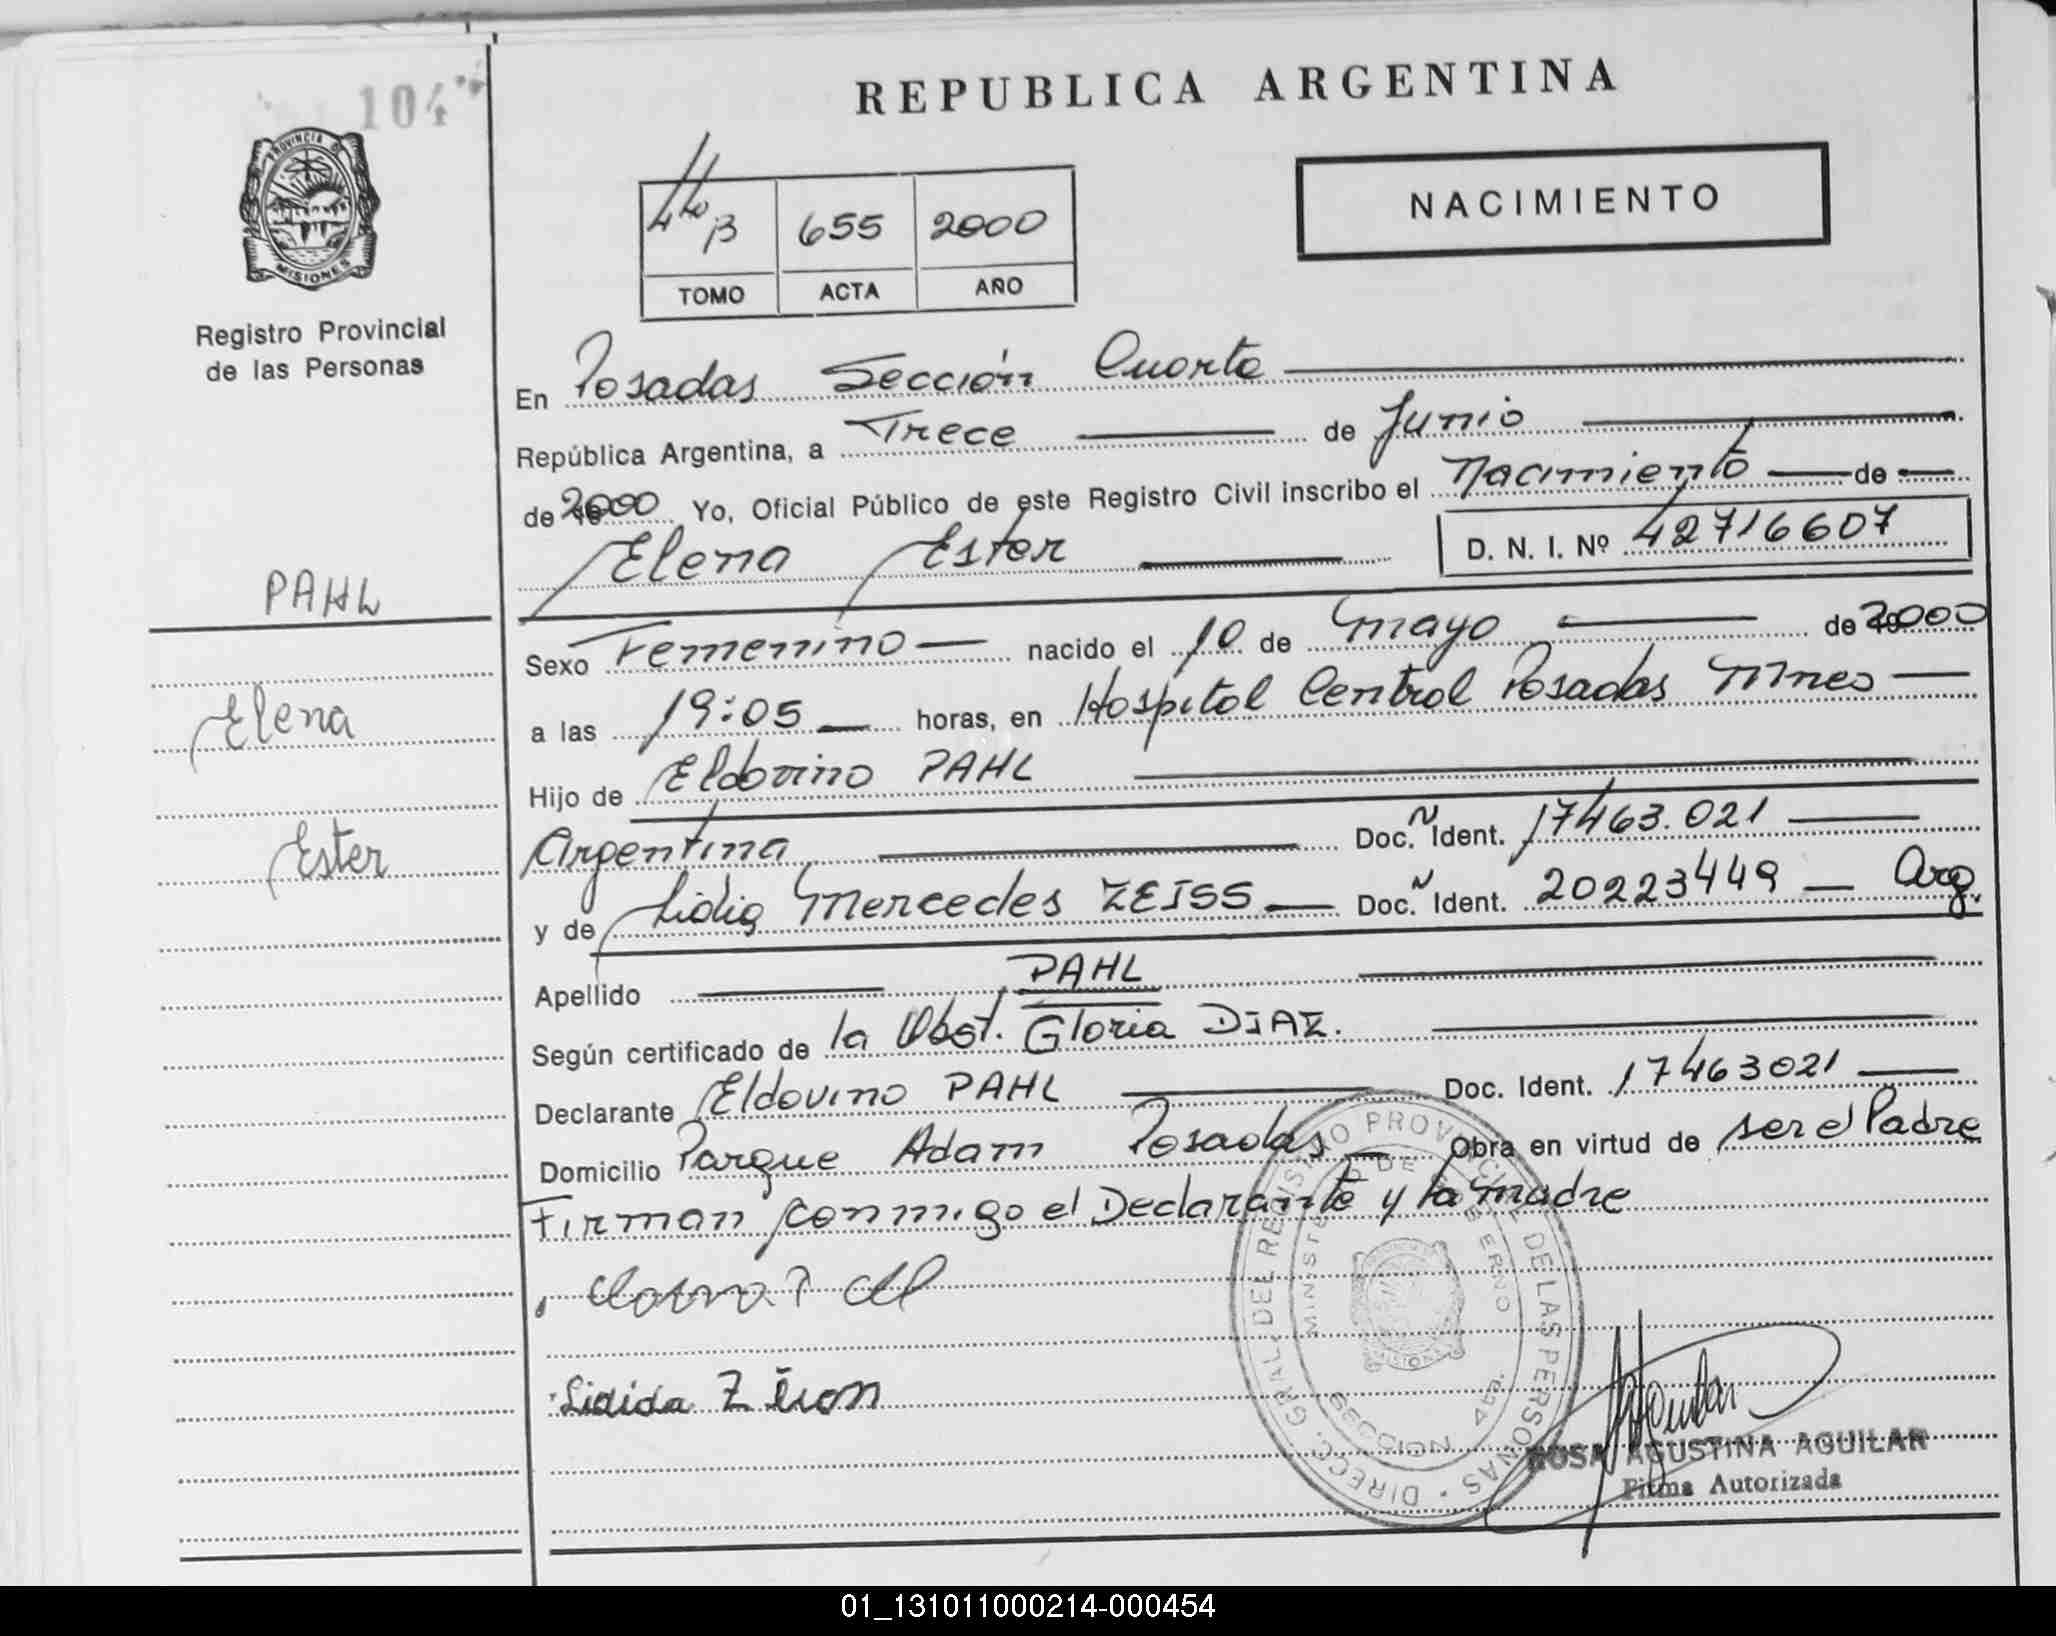 104
PROVINCIA D
MISIONES
Registro Provincial
de las Personas
REPUBLICA ARGENTINA
NACIMIENTO
4to B 655 2000
TOMO ACTA AÑO
En Posadas Sección Cuarta
República Argentina, a Trece de Junio
de 2000 Yo, Oficial Público de este Registro Civil inscribo el Nacimiento de
Elena Ester D. N. I. Nº 42716607
PAHL
Elena
Ester
Sexo Femenino nacido el 10 de mayo de 2000
a las 19:05 horas, en Hospital Central Posadas Mnes
Hijo de Eldovino PAHL
Argentina Doc. Ident. 17463.021
y de Lidia Mercedes ZEISS Doc. Ident. 20223449 Arg.
Apellido PAHL
Según certificado de la Obst. Gloria DIAZ.
Declarante Eldovino PAHL Doc. Ident. 17463021
Domicilio Parque Adam Posadas Obra en virtud de ser el Padre
Firman conmigo el Declarante y la madre
DIRECC. GRAL. DEL REGISTRO PROVINCIAL DE LAS PERSONAS
MINISTERIO DE GOBIERNO
SECCION 4ta.
MISIONES
ROSA AGUSTINA AGUILAR
Firma Autorizada
01_131011000214-000454